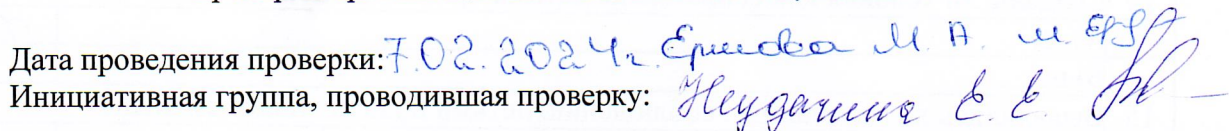 Дата проведения проверки: 7.02.2024г. Ермова М. А.
Инициативная группа, проводившая проверку: Неудачина Е. Е.